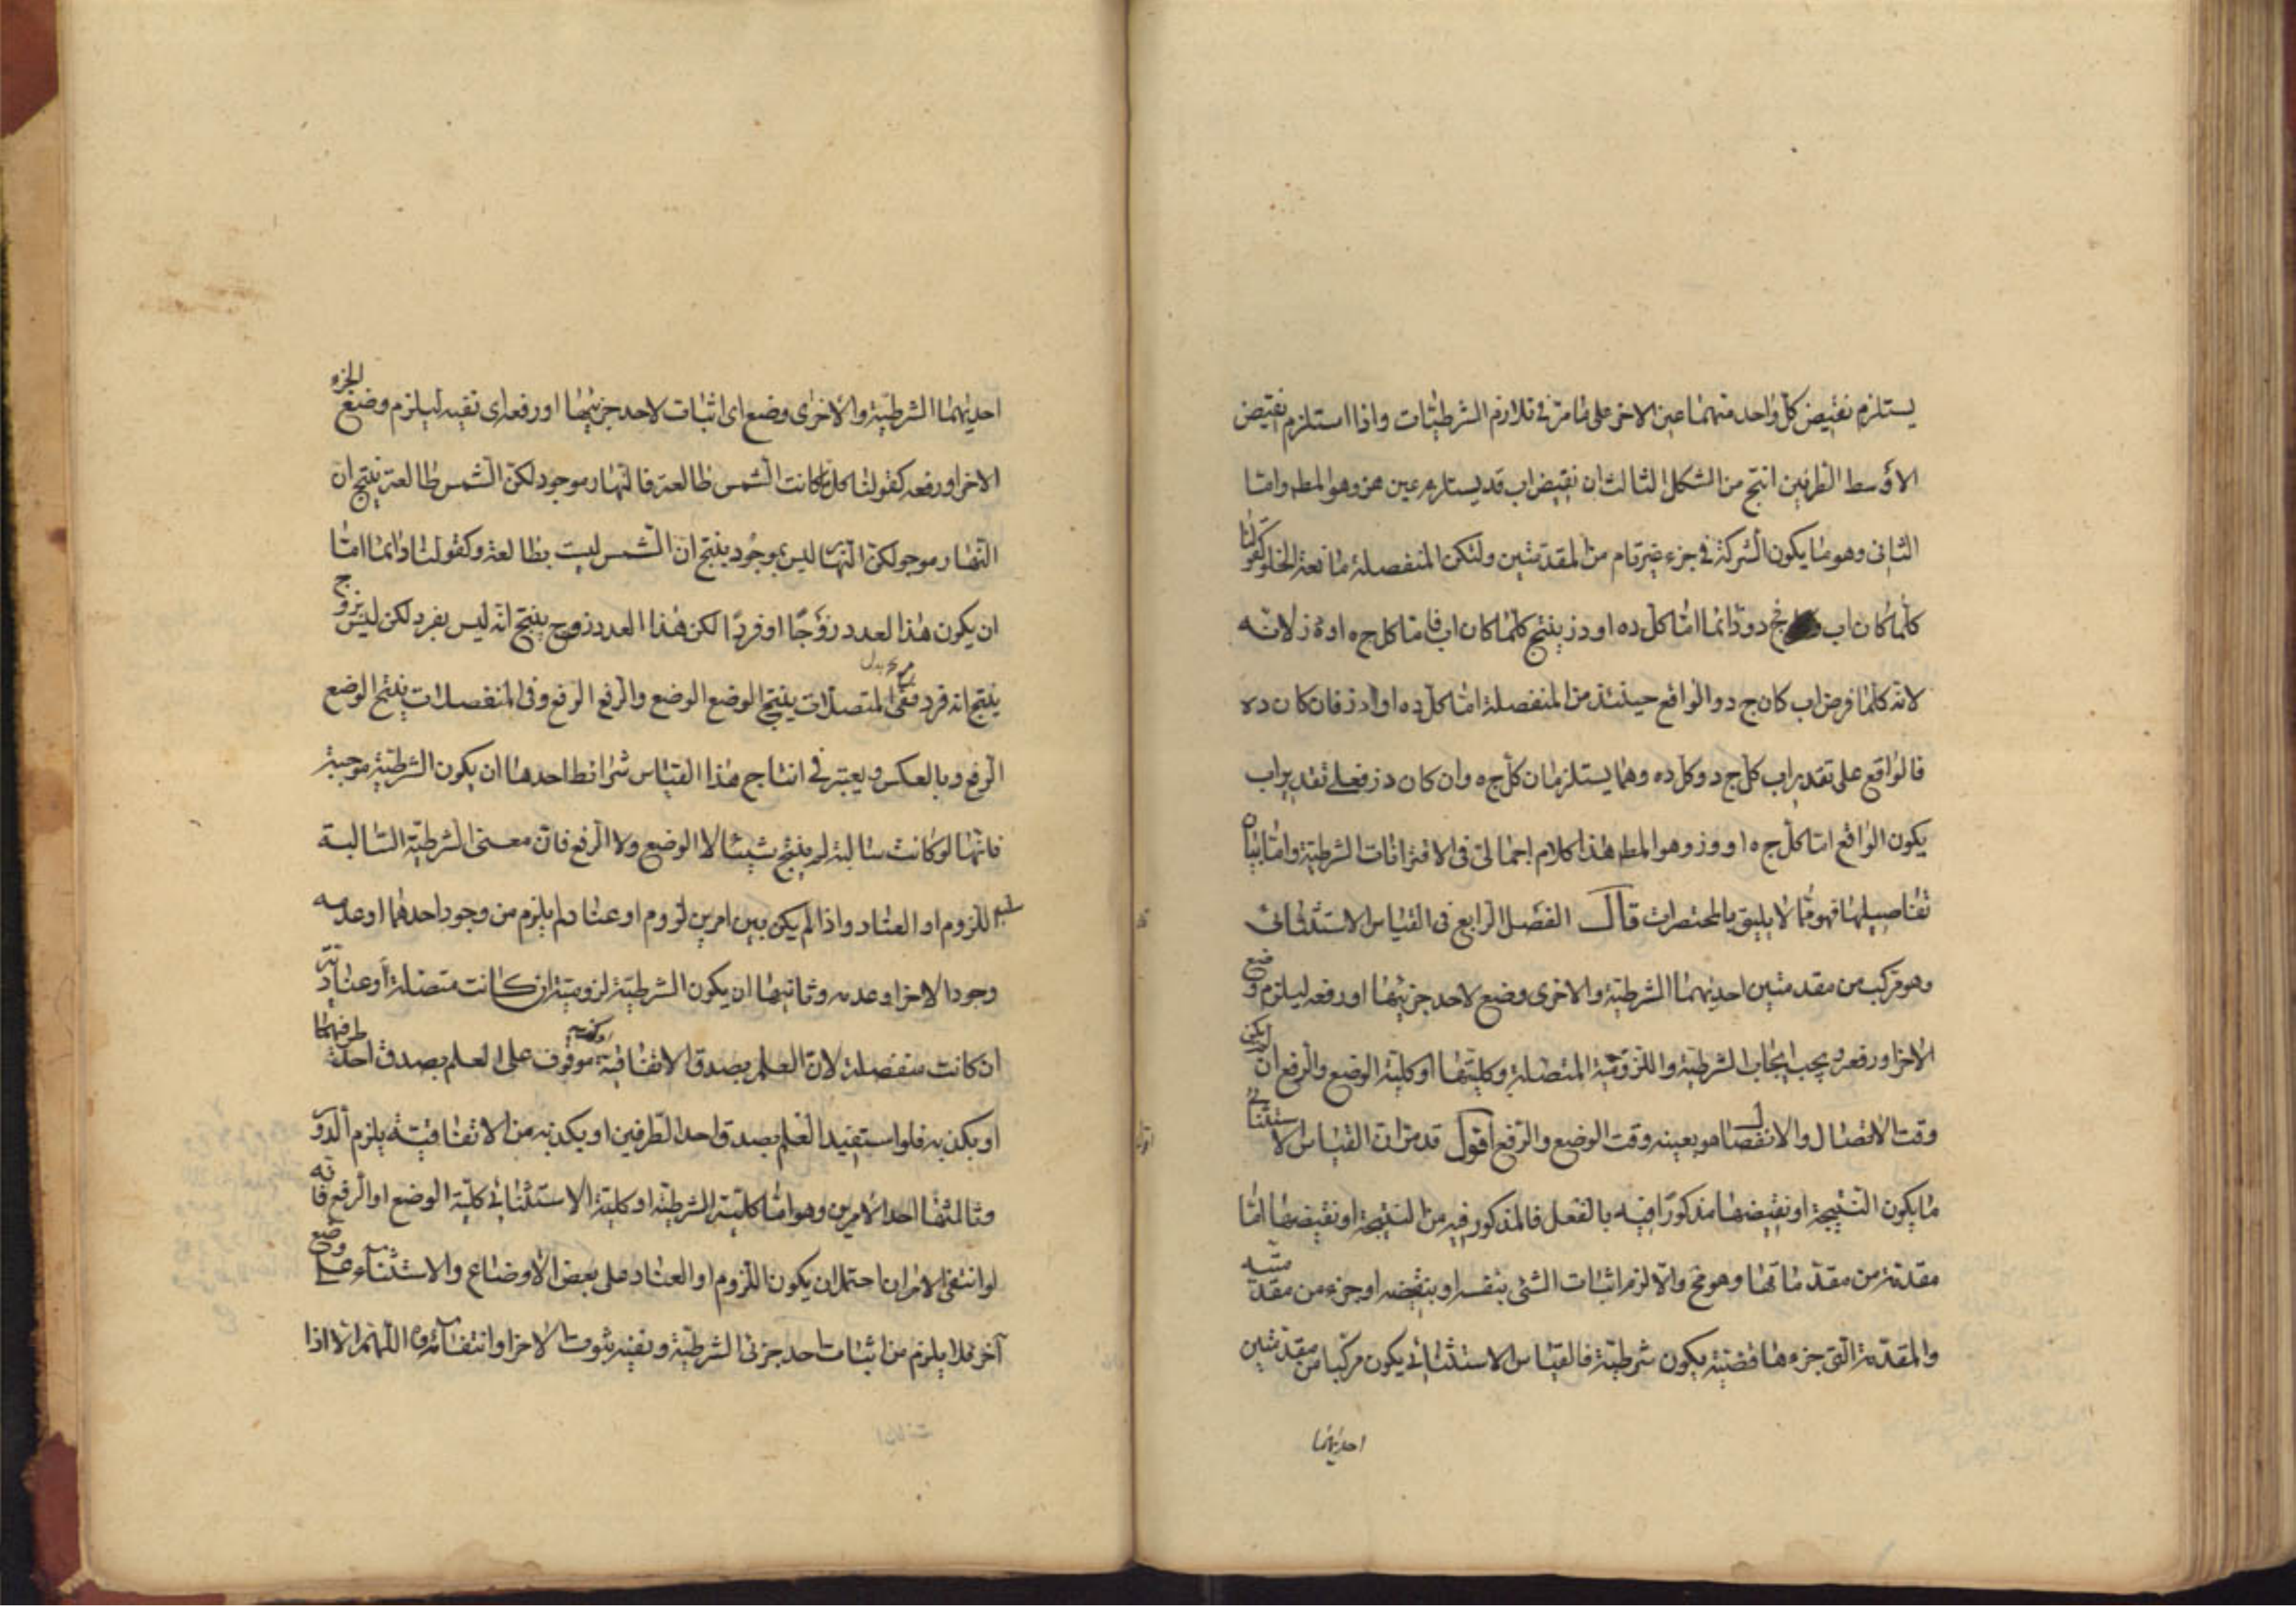 يستلزم نقيض كل واحد منهما عين الاخر على ما مر فى تلازم الشرطيات واذا استلزم نقيض
الاوسط الطرفين انتج من الشكل الثالث ان نقيض اب قد يستلزم عين هز وهو المطم واما
الثانى وهو ما يكون الشركة فى جزء غير تام من المقدمتين ولتكن المنفصلة مانعة الخلو كقولنا
كلما كان اب فج د ودائما اما كل ده او دز ينتج كلما كان اب فاما كل جه او ز لانه
لانه كلما فرض اب كان ج د والواقع حينئذ من المنفصلة اما كل ده او دز فان كان ده
فالواقع على تقدير اب كل ج د وكل ده وهما يستلزمان كل جه وان كان دز فعلى تقدير اب
يكون الواقع اما كل جه او وز وهو المطم هذا كلام اجمالى فى الاقترانات الشرطية واما بيان
تفاصيلها فهو مما لا يليق بالمختصرات قال الفصل الرابع فى القياس الاستثنائى
وهو مركب من مقدمتين احديهما الشرطية والاخرى وضع لاحد جزئيها او رفعه ليلزم وضع
الاخر او رفعه ويجب ايجاب الشرطية واللزومية المتصلة وكليتها او كلية الوضع والرفع ان لم يكن
وقت الاتصال والانفصال هو بعينه وقت الوضع والرفع اقول قد مر ان القياس الاستثنائى
ما يكون النتيجة او نقيضها مذكورا فيه بالفعل فالمذكور فيه من النتيجة او نقيضها اما
مقدمة من مقدماتها وهو مح والا لزم اثبات الشئ بنفسه او بنقيضه او جزء من مقدمته
والمقدمة التى جزءها قضية يكون شرطية فالقياس الاستثنائى يكون مركبا من مقدمتين
احديهما
احديهما الشرطية والاخرى وضع اى اثبات لاحد جزئيها او رفعه اى نفيه ليلزم وضع الجزء
الاخر او رفعه كقولنا كلما كانت الشمس طالعة فالنهار موجود لكن الشمس طالعة ينتج ان
النهار موجو لكن النهار ليس بموجود ينتج ان الشمس ليست بطالعة وكقولنا دائما اما
ان يكون هذا العدد زوجا او فردا لكن هذا العدد زوج ينتج انه ليس بفرد لكن ليس بزوج
ينتج انه فرد ففى المتصلات ينتج الوضع الوضع والرفع الرفع وفى المنفصلات ينتج الوضع
الرفع وبالعكس ويعتبر فى انتاج هذا القياس شرائط احدها ان يكون الشرطية موجبة
فانها لو كانت سالبة لم ينتج شيئا لا الوضع ولا الرفع فان معنى الشرطية السالبة
سلب اللزوم او العناد واذا لم يكن بين امرين لزوم او عناد لم يلزم من وجود احدهما او عدمه
وجود الاخر او عدمه وثانيها ان يكون الشرطية لزومية ان كانت متصلة او عنادية
ان كانت منفصلة لان العلم بصدق الاتفاقية او كذبه موقوف على العلم بصدق احد طرفيها
او بكذبه فلو استفيد العلم بصدق احد الطرفين او بكذبه من الاتفاقية يلزم الدور
وثالثها احد الامرين وهو اما كلية الشرطية او كلية الاستثنائى كلية الوضع او الرفع فانه
لو انتفى الامران احتمل ان يكون اللزوم او العناد على بعض الاوضاع والاستثناء على وضع
آخر فلا يلزم من اثبات احد جزئى الشرطية ونفيه ثبوت الاخر او انتفائه اللهم الا اذا